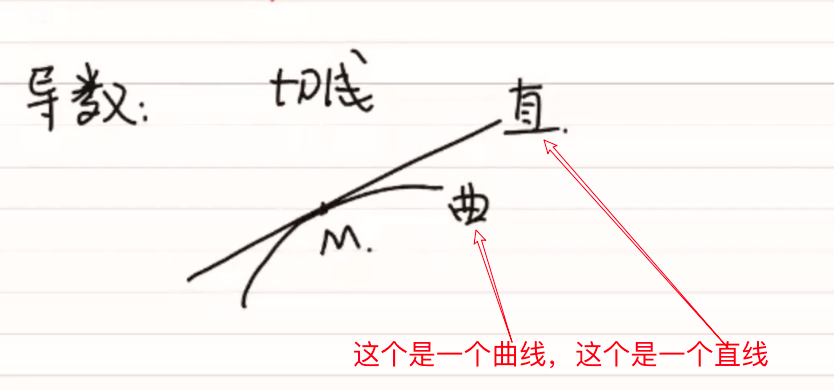 导数： 切线
直.
曲
M.
这个是一个曲线，这个是一个直线